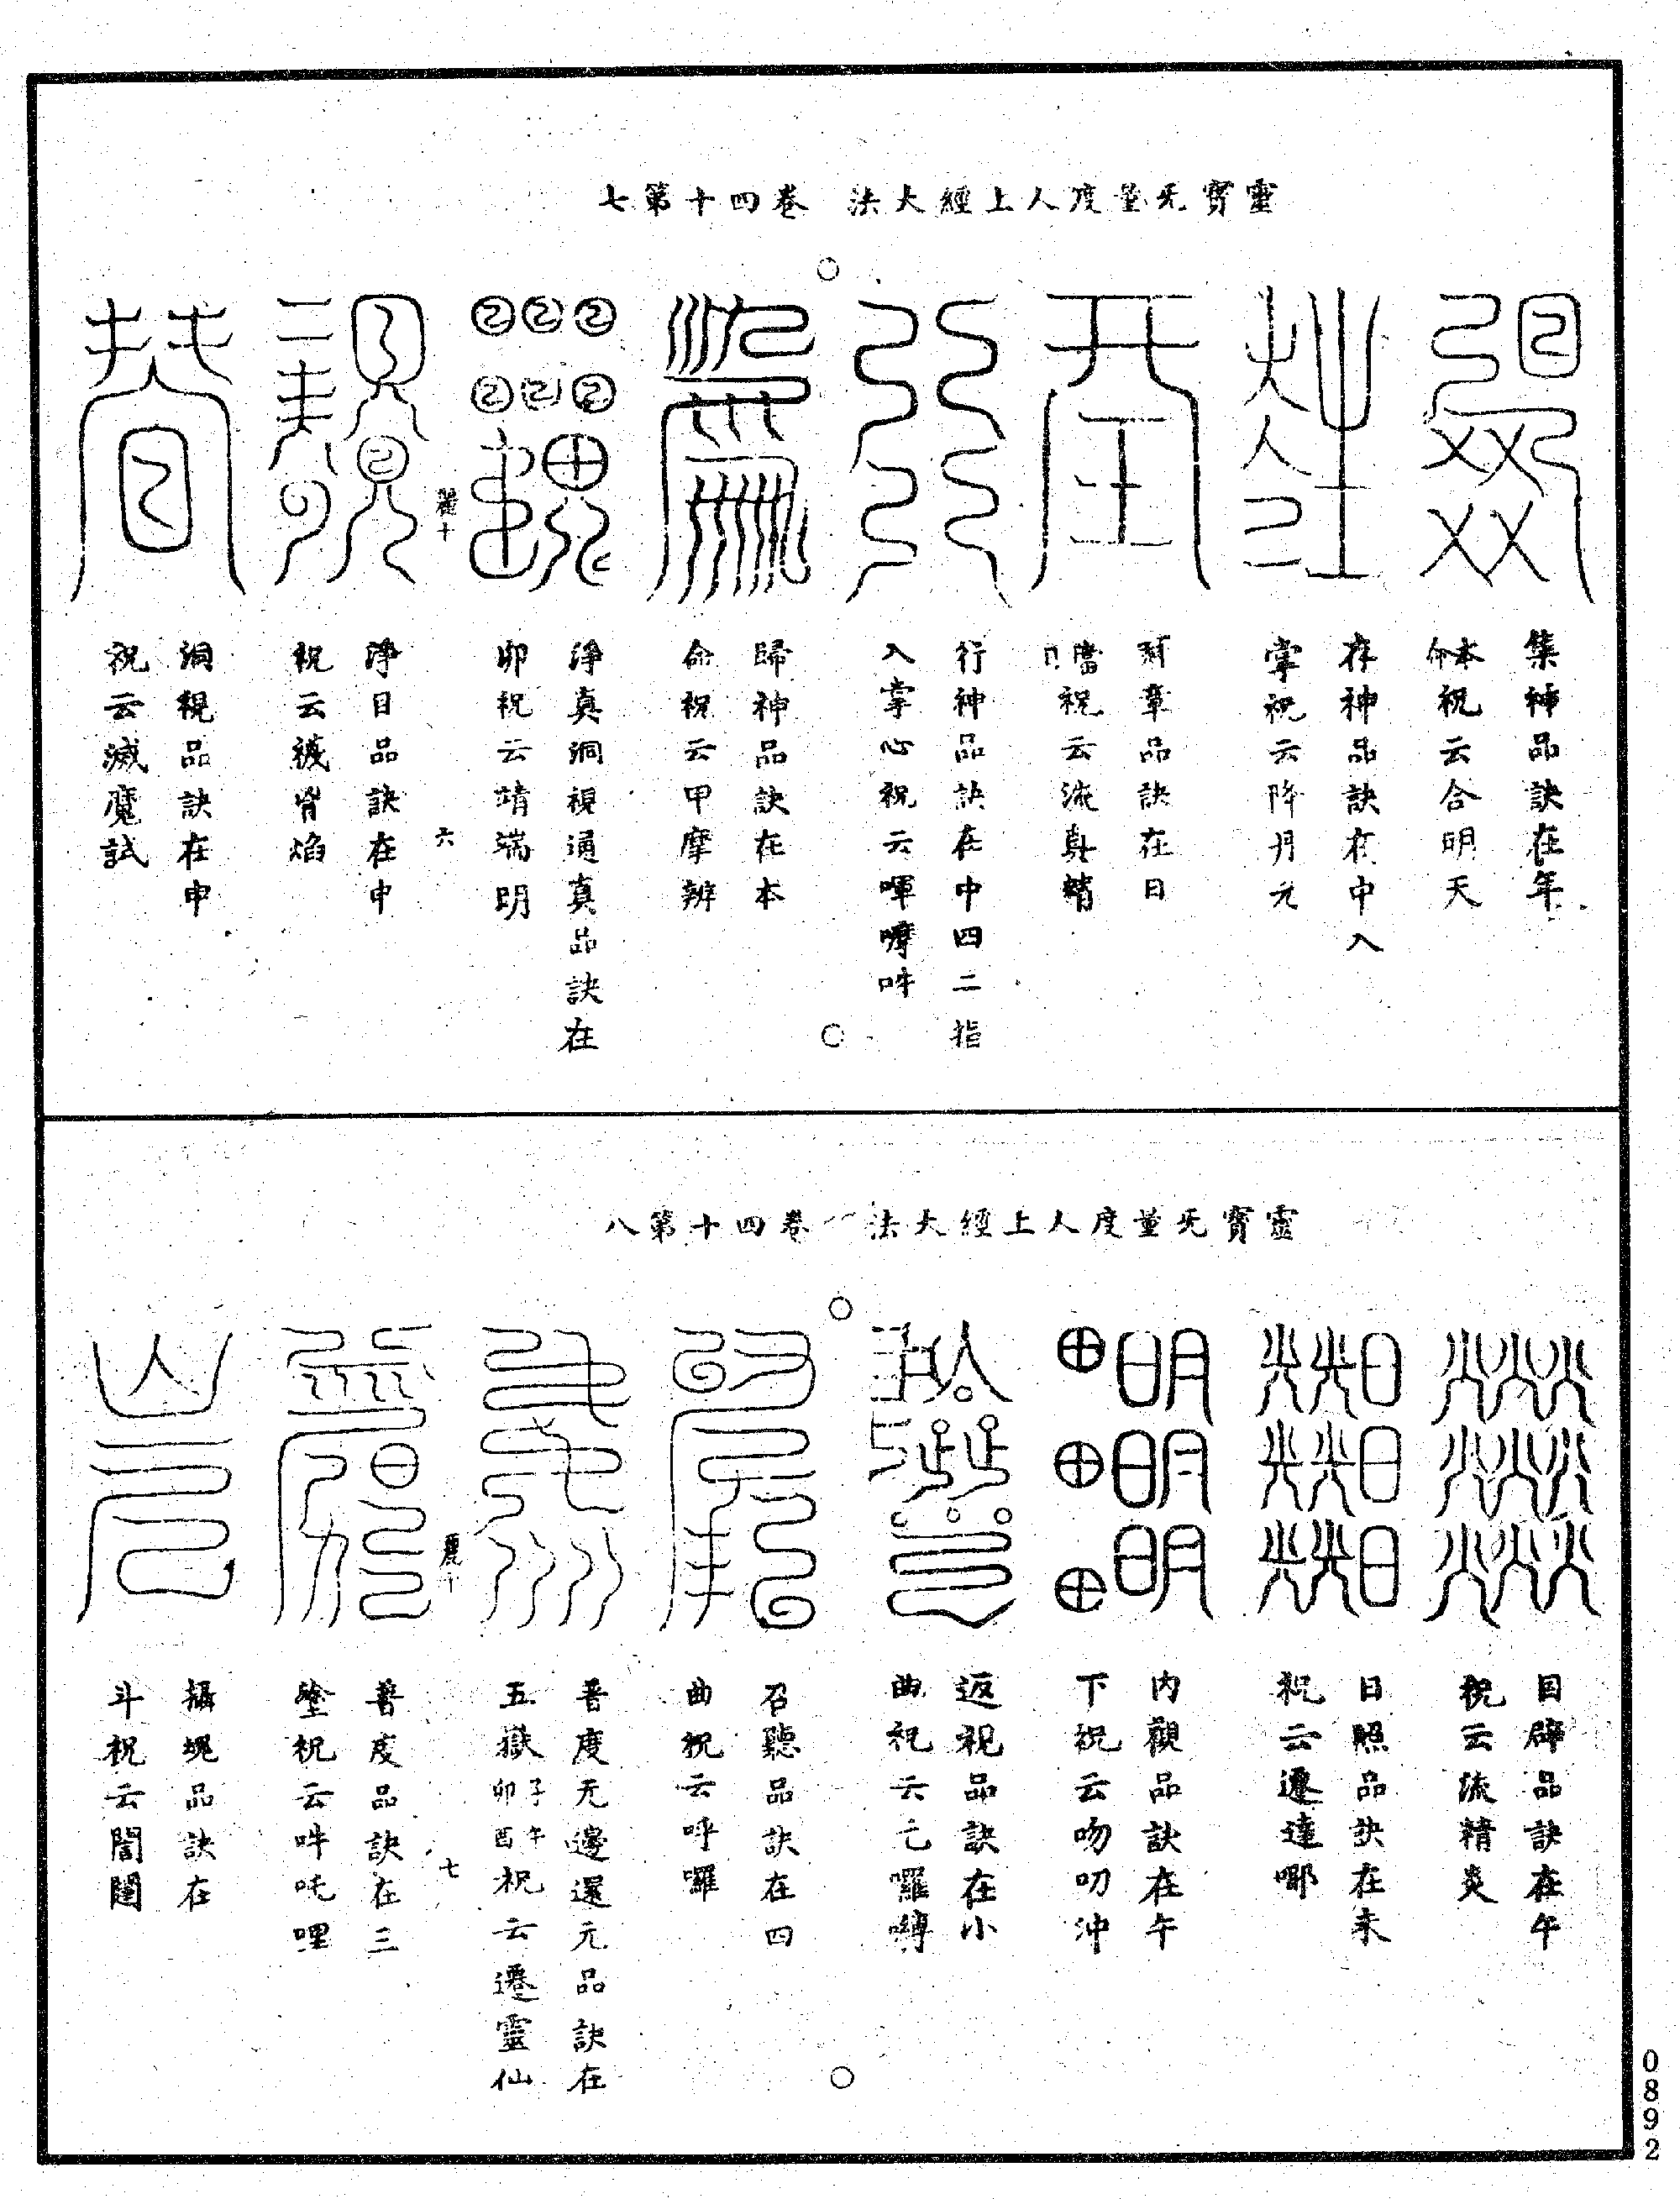 靈寶无量度人上經大法 卷四十第七
集神品訣在年
本命祝云合明天
存神品訣在中入
掌祝云降丹元
章品訣在日
當日祝云流真精
行神品訣在中四二指
入掌心祝云暉嚤吽
歸神品訣在本
命祝云甲摩辨
淨真洞視通真品訣在
卯祝云靖端明
麗十
六
淨目品訣在申
祝云襪胥焰
洞視品訣在申
祝云滅魔試
靈寶无量度人上經大法 卷四十第八
目辟品訣在午
祝云流精炎
日照品訣在未
祝云遷達哪
內觀品訣在午
下祝云吻叨沖
返視品訣在小
曲祝云乙囉嚩
召聽品訣在四
曲祝云呼囉
普度无邊還元品訣在
五嶽子午卯酉祝云遷靈仙
麗十
七
普度品訣在三
塗祝云吽吒哩
攝魂品訣在
斗祝云閣闥
0892